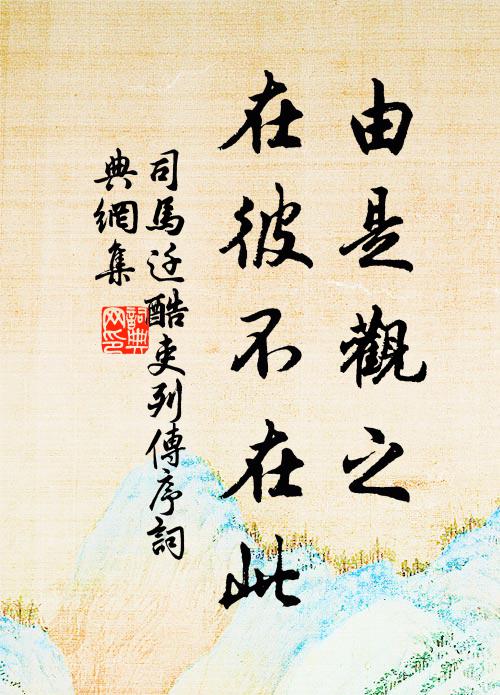 由是觀之
在彼不在此
司馬迁酷吏列傳序詞
典網集
詞典
网印